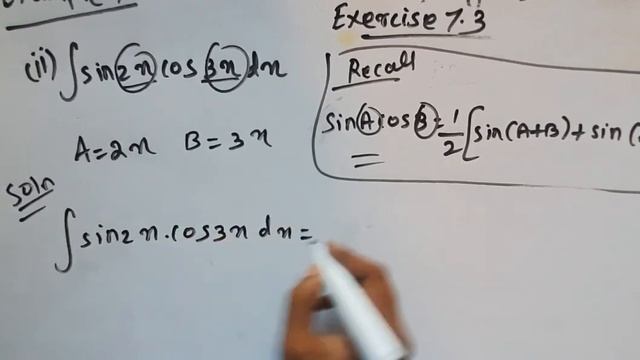 Exercise 7.3
(ii) ∫ sin 2x cos 3x dx
Recall
sin A cos B = 1/2 [sin(A+B) + sin(
A = 2x B = 3x
Soln
∫ sin 2x . cos 3x dx =